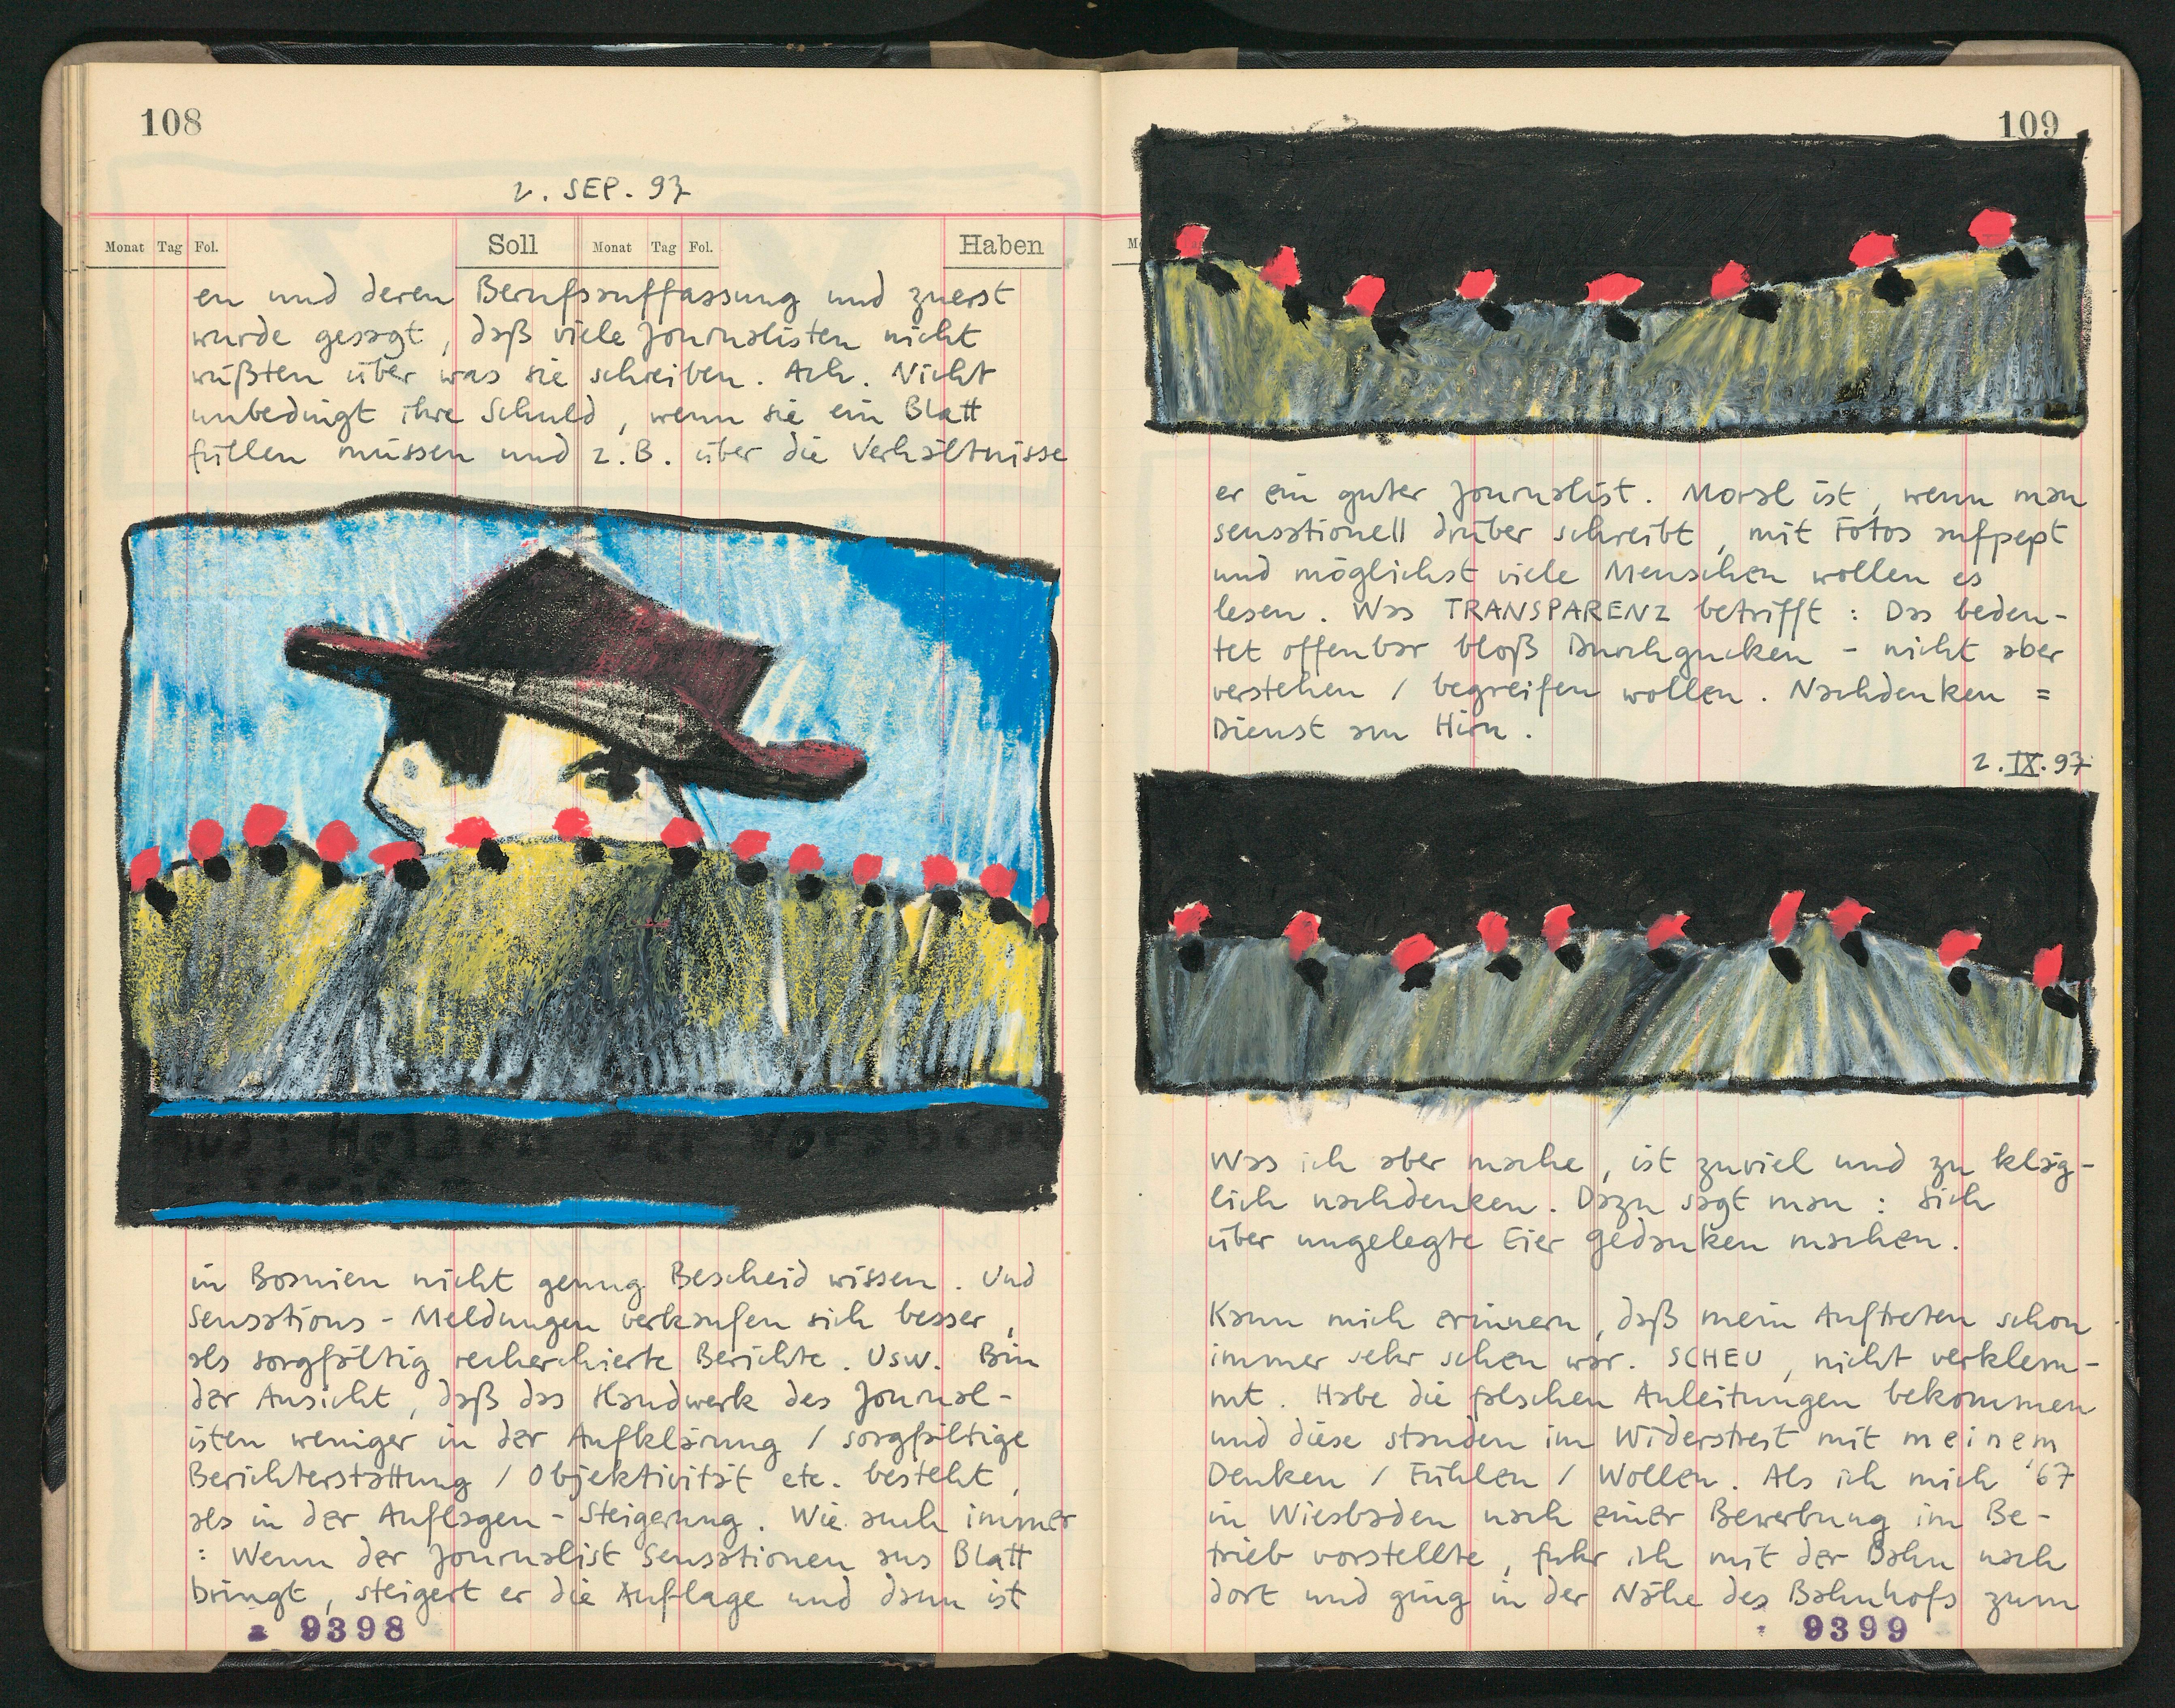 108
2. SEP. 97
Monat Tag Fol. Soll Monat Tag Fol. Haben
en und deren Berufsauffassung und zuerst
wurde gesagt, daß viele Journalisten nicht
wüßten über was sie schreiben. Ach. Nicht
unbedingt ihre Schuld, wenn sie ein Blatt
füllen müssen und z.B. über die Verhältnisse
in Bosnien nicht genug Bescheid wissen. Und
Sensations-Meldungen verkaufen sich besser,
als sorgfältig recherchierte Berichte. Usw. Bin
der Ansicht, daß das Handwerk des Journal-
isten weniger in der Aufklärung / sorgfältige
Berichterstattung / Objektivität etc. besteht,
als in der Auflagen-Steigerung. Wie auch immer
: Wenn der Journalist Sensationen aus Blatt
bringt, steigert er die Auflage und dann ist
9398
109
er ein guter Journalist. Moral ist, wenn man
sensationell drüber schreibt, mit Fotos aufpept
und möglichst viele Menschen wollen es
lesen. Was TRANSPARENZ betrifft: Das bedeu-
tet offenbar bloß Durchgucken - nicht aber
verstehen / begreifen wollen. Nachdenken =
Dienst am Hirn.
2.IX.97
Was ich aber mache, ist zuviel und zu kläg-
lich nachdenken. Dazu sagt man: Sich
über ungelegte Eier Gedanken machen.
Kann mich erinnern, daß mein Auftreten schon
immer sehr scheu war. SCHEU, nicht verklem-
mt. Habe die falschen Anleitungen bekommen
und diese standen im Widerstreit mit meinem
Denken / Fühlen / Wollen. Als ich mich '67
in Wiesbaden nach einer Bewerbung im Be-
trieb vorstellte, fuhr ich mit der Bahn nach
dort und ging in der Nähe des Bahnhofs zum
9399